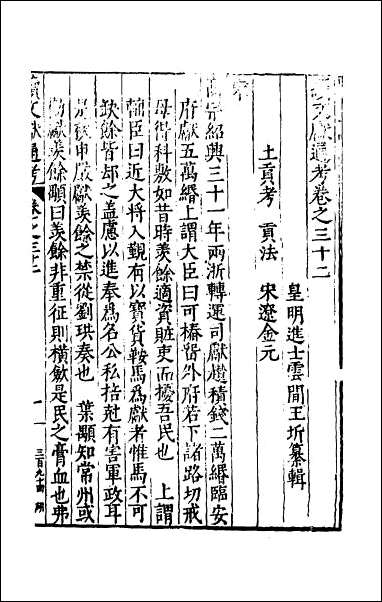 續文獻通考卷之三十二
皇明進士雲間王圻纂輯
土貢考 貢法 宋遼金元
宋
高宗紹興三十一年兩浙轉運司獻樁積錢二萬緡臨安
府獻五萬緡上謂大臣曰可樁留外府若下諸路切戒
毋得科敷如昔時羨餘適資贓吏而擾吾民也 上謂
輔臣曰近大將入覲有以寶貨鞍馬為獻者惟馬不可
缺餘皆却之盖慮以進奉為名公私掊尅有害軍政耳
是秋申嚴獻羨餘之禁從劉珙奏也 葉顒知常州或
勸獻羨餘顒曰羨餘非重征則橫斂是民之膏血也弗
續文獻通考 卷之三十二 一